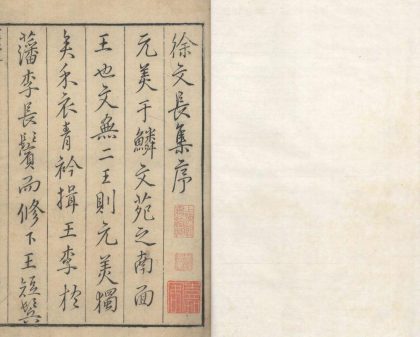 徐文長集序
元美于鱗文苑之南面
王也文無二王則元美獨
矣余衣青衿揖王李於
藩李長鬢而修下王短鬢